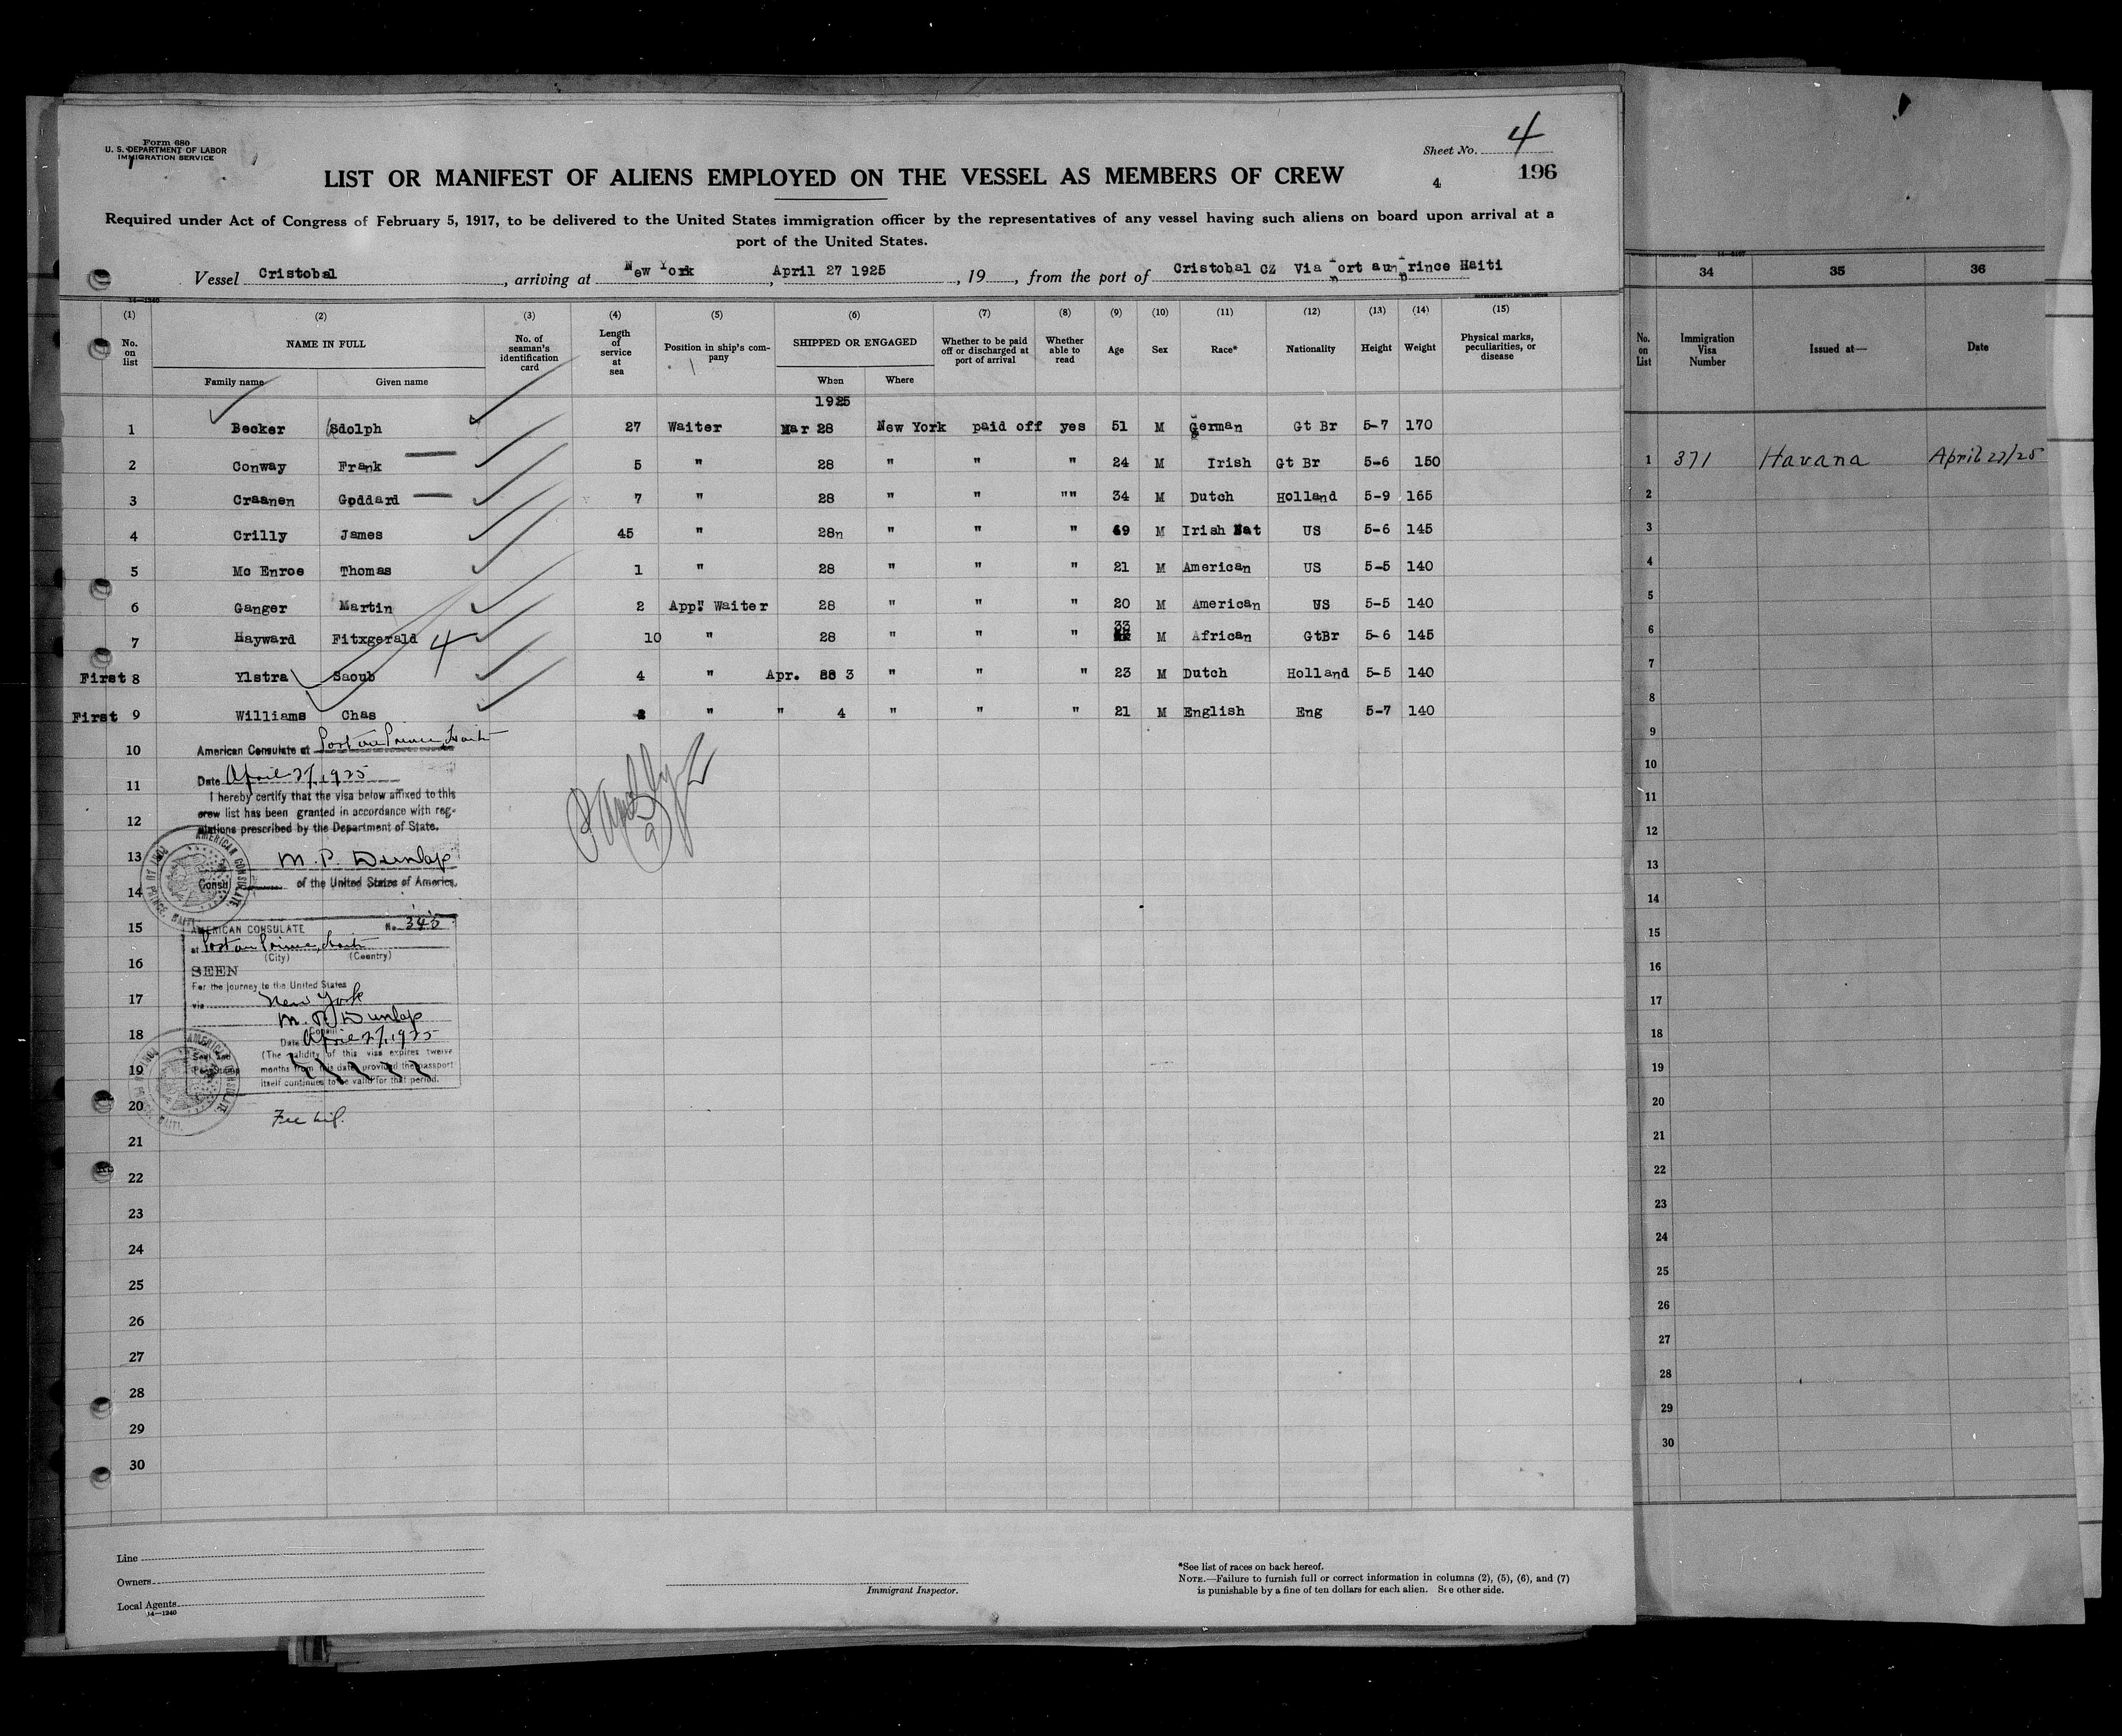 Form 680
U. S. DEPARTMENT OF LABOR
IMMIGRATION SERVICE
Sheet No. 4
4 196
LIST OR MANIFEST OF ALIENS EMPLOYED ON THE VESSEL AS MEMBERS OF CREW
Required under Act of Congress of February 5, 1917, to be delivered to the United States immigration officer by the representatives of any vessel having such aliens on board upon arrival at a
port of the United States.
Vessel Cristobal, arriving at New York, April 27 1925, 19, from the port of Cristobal CZ Via Port aun Prince Haiti
14—1240
(1) (2) (3) (4) (5) (6) (7) (8) (9) (10) (11) (12) (13) (14) (15)
No. on list NAME IN FULL No. of seaman's identification card Length of service at sea Position in ship's company SHIPPED OR ENGAGED Whether to be paid off or discharged at port of arrival Whether able to read Age Sex Race* Nationality Height Weight Physical marks, peculiarities, or disease
Family name Given name When Where
1925
1 Becker Sdolph 27 Waiter Mar 28 New York paid off yes 51 M German Gt Br 5-7 170
2 Conway Frank 5 " 28 " " " 24 M Irish Gt Br 5-6 150
3 Craanen Goddard 7 " 28 " " "" 34 M Dutch Holland 5-9 165
4 Crilly James 45 " 28n " " " 69 M Irish Nat US 5-6 145
5 Mc Enroe Thomas 1 " 28 " " " 21 M American US 5-5 140
6 Ganger Martin 2 App" Waiter 28 " " " 20 M American US 5-5 140
7 Hayward Fitxgerald 4 10 " 28 " " " 33 M African GtBr 5-6 145
First 8 Ylstra Saoub 4 " Apr. 28 3 " " " 23 M Dutch Holland 5-5 140
First 9 Williams Chas " " 4 " " " 21 M English Eng 5-7 140
10 American Consulate at Port au Prince, Haiti
11 Date April 21, 1925
I hereby certify that the visa below affixed to this
12 crew list has been granted in accordance with reg-
ulations prescribed by the Department of State.
13 M. P. Dunlap
14 Consul of the United States of America.
AMERICAN CONSULATE
PORT AU PRINCE, HAITI
15 AMERICAN CONSULATE No. 345
at Port au Prince, Haiti
16 (City) (Country)
SEEN
For the journey to the United States
17 via New York
M. P. Dunlap
18 Consul
Date April 21, 1925
(The validity of this visa expires twelve
19 months from this date provided the passport
itself continues to be valid for that period.
AMERICAN CONSULATE
PORT AU PRINCE, HAITI
20
21
22
23
24
25
26
27
28
29
30
Line
Owners
Local Agents
14—1240
Immigrant Inspector.
*See list of races on back hereof.
NOTE.—Failure to furnish full or correct information in columns (2), (5), (6), and (7)
is punishable by a fine of ten dollars for each alien. See other side.
34 35 36
No. on List Immigration Visa Number Issued at— Date
1 371 Havana April 22/25
2
3
4
5
6
7
8
9
10
11
12
13
14
15
16
17
18
19
20
21
22
23
24
25
26
27
28
29
30